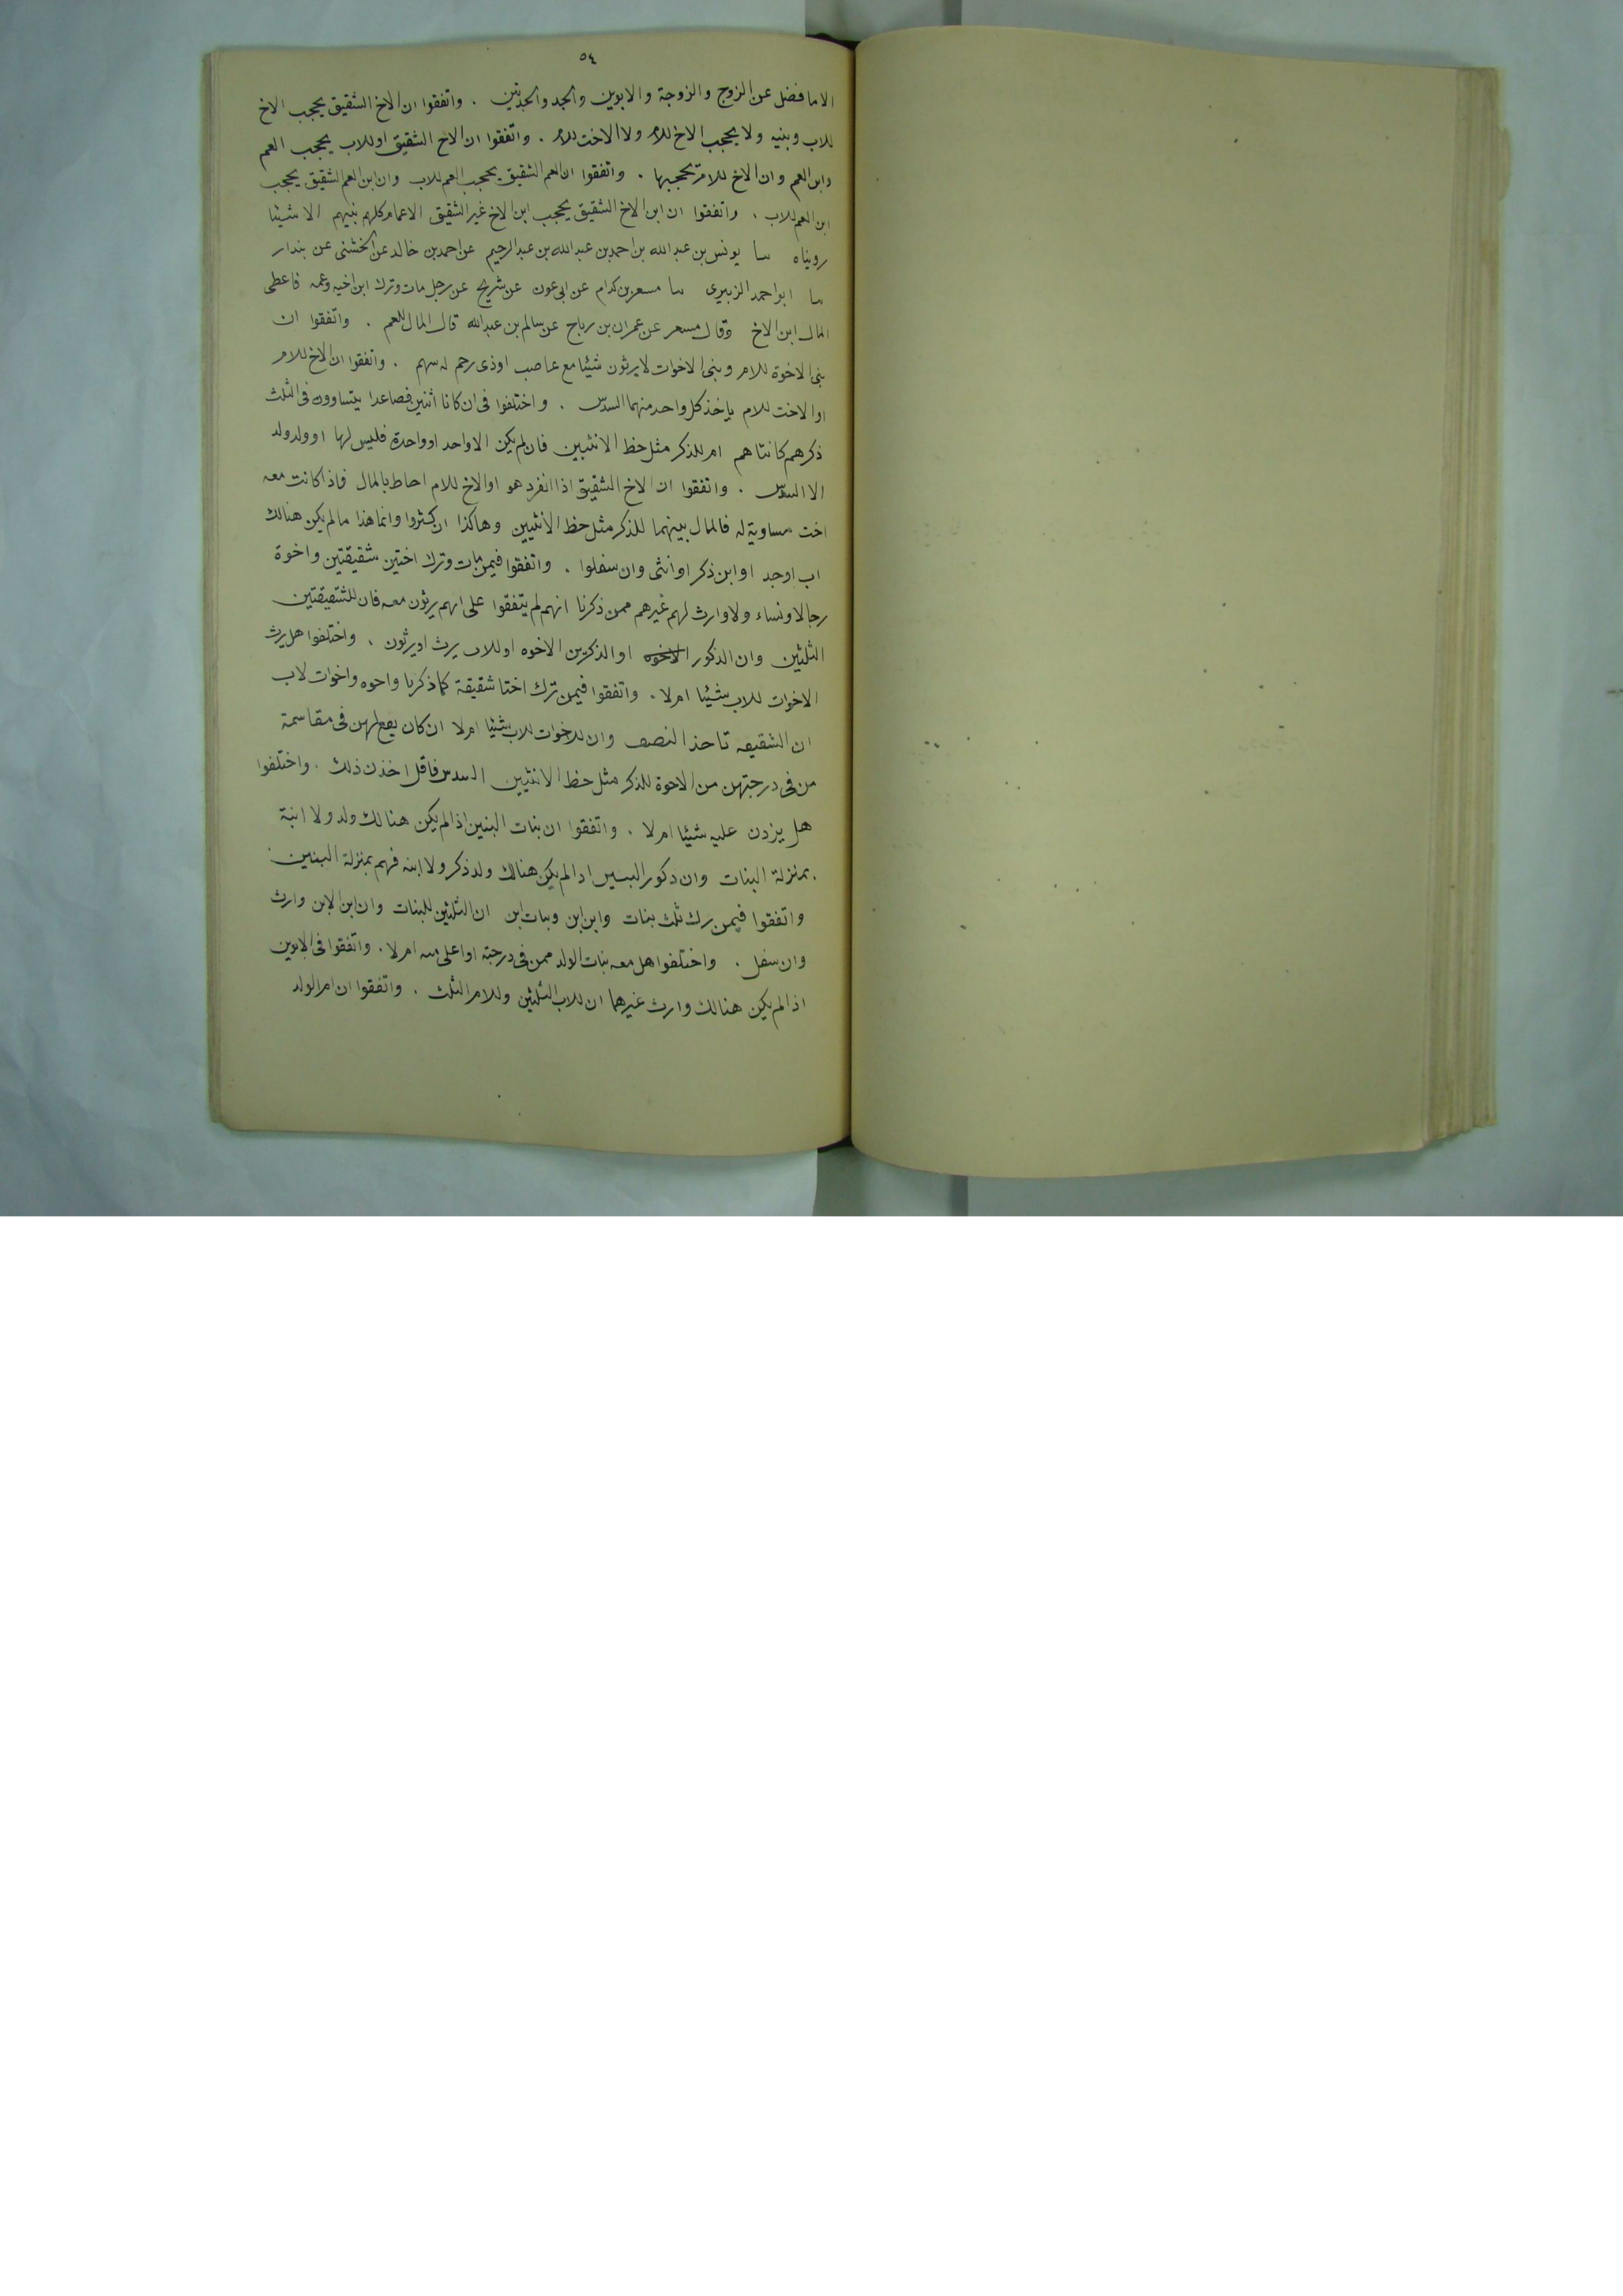 ٥٤
الا ما فضل عن الزوج والزوجة والابوين والجد والجدتين . واتفقوا ان الاخ الشقيق يحجب الاخ
للاب وبنيه ولا يحجب الاخ للام ولا الاخت للام . واتفقوا ان الاخ الشقيق او للاب يحجب العم
وابن العم وان الاخ للام لا يحجبها . واتفقوا ان العم الشقيق يحجب العم للاب وان ابن العم الشقيق يحجب
ابن العم للاب . واتفقوا ان ابن الاخ الشقيق يحجب ابن الاخ غير الشقيق الاعمام كلهم بنيهم الا شيئا
رويناه سا يونس بن عبد الله بن احمد بن عبد الله بن عبد الرحيم عن احمد بن خالد عن الخشنى عن بندار
سا ابو احمد الزبيرى سا مسعر بن كدام عن ابى عون عن شريح عن رجل مات وترك ابن اخيه وعمه فاعطى
المال ابن الاخ وقال مسعر عن عمران بن رباح عن سالم بن عبد الله قال المال للعم . واتفقوا ان
بنى الاخوة للام وبنى الاخوات لا يرثون شيئا مع عاصب او ذى رحم له سهم . واتفقوا ان الاخ للام
او الاخت للام ياخذ كل واحد منهما السدس . واختلفوا فى ان كانا اثنين فصاعدا يتساوون فى الثلث
ذكرهم كانثاهم ام للذكر مثل حظ الانثيين فان لم يكن الا واحد او واحدة فليس لها او ولد ولد
الا السدس . واتفقوا ان الاخ الشقيق اذا انفرد هو او الاخ للام احاط بالمال فاذا كانت معه
اخت مساوية له فالمال بينهما للذكر مثل حظ الانثيين وهاكذا ان كثروا وانما هذا ما لم يكن هنالك
اب او جد او ابن ذكر او انثى وان سفلوا . واتفقوا فيمن مات وترك اختين شقيقتين واخوة
رجالا ونساء ولا وارث لهم غيرهم ممن ذكرنا انهم لم يتفقوا على انهم يرثون معه فان للشقيقتين
الثلثين وان الذكور الاخوه او الذكر من الاخوه او للاب يرث او يرثون . واختلفوا هل يرث
الاخوات للاب شيئا ام لا . واتفقوا فيمن ترك اختا شقيقة كما ذكرنا واحوه واخوات لاب
ان الشقيقه تاخذ النصف وان للاخوات للاب شيئا ام لا ان كان يقع لهن فى مقاسمة
من فى درجتهن من الاخوة للذكر مثل حظ الانثيين السدس فاقل اخذن ذلك . واختلفوا
هل يزدن عليه شيئا ام لا . واتفقوا ان بنات البنين اذا لم يكن هنالك ولد ولا ابنة
بمنزلة البنات وان دكور البنين ادا لم يكن هنالك ولد ذكر ولا ابنه فهم بمنزلة البنين .
واتفقوا فيمن ترك ثلث بنات وابن ابن وبنات ابن ان الثلثين للبنات وان ابن الابن وارث
وان سفل . واختلفوا هل معه بنات الولد ممن فى درجته او اعلى منه ام لا . واتفقوا فى الابوين
اذا لم يكن هنالك وارث غيرهما ان للاب الثلثين وللام الثلث . واتفقوا ان ام الولد